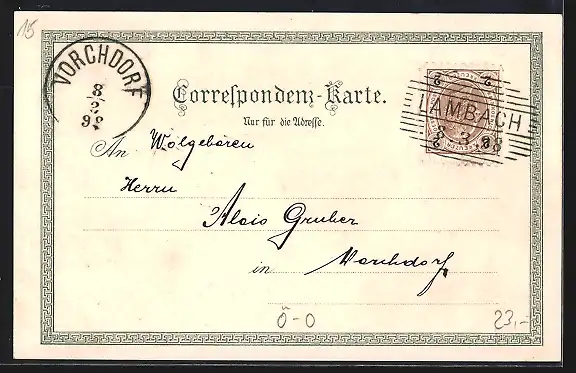 15
VORCHDORF
8
3
98
Correspondenz-Karte.
Nur für die Adresse.
2 2
LAMBACH
8 3 98
2 2
An Wolgeboren
Herrn
Alois Gruber
in Vorchdorf
Ö-O
23,-